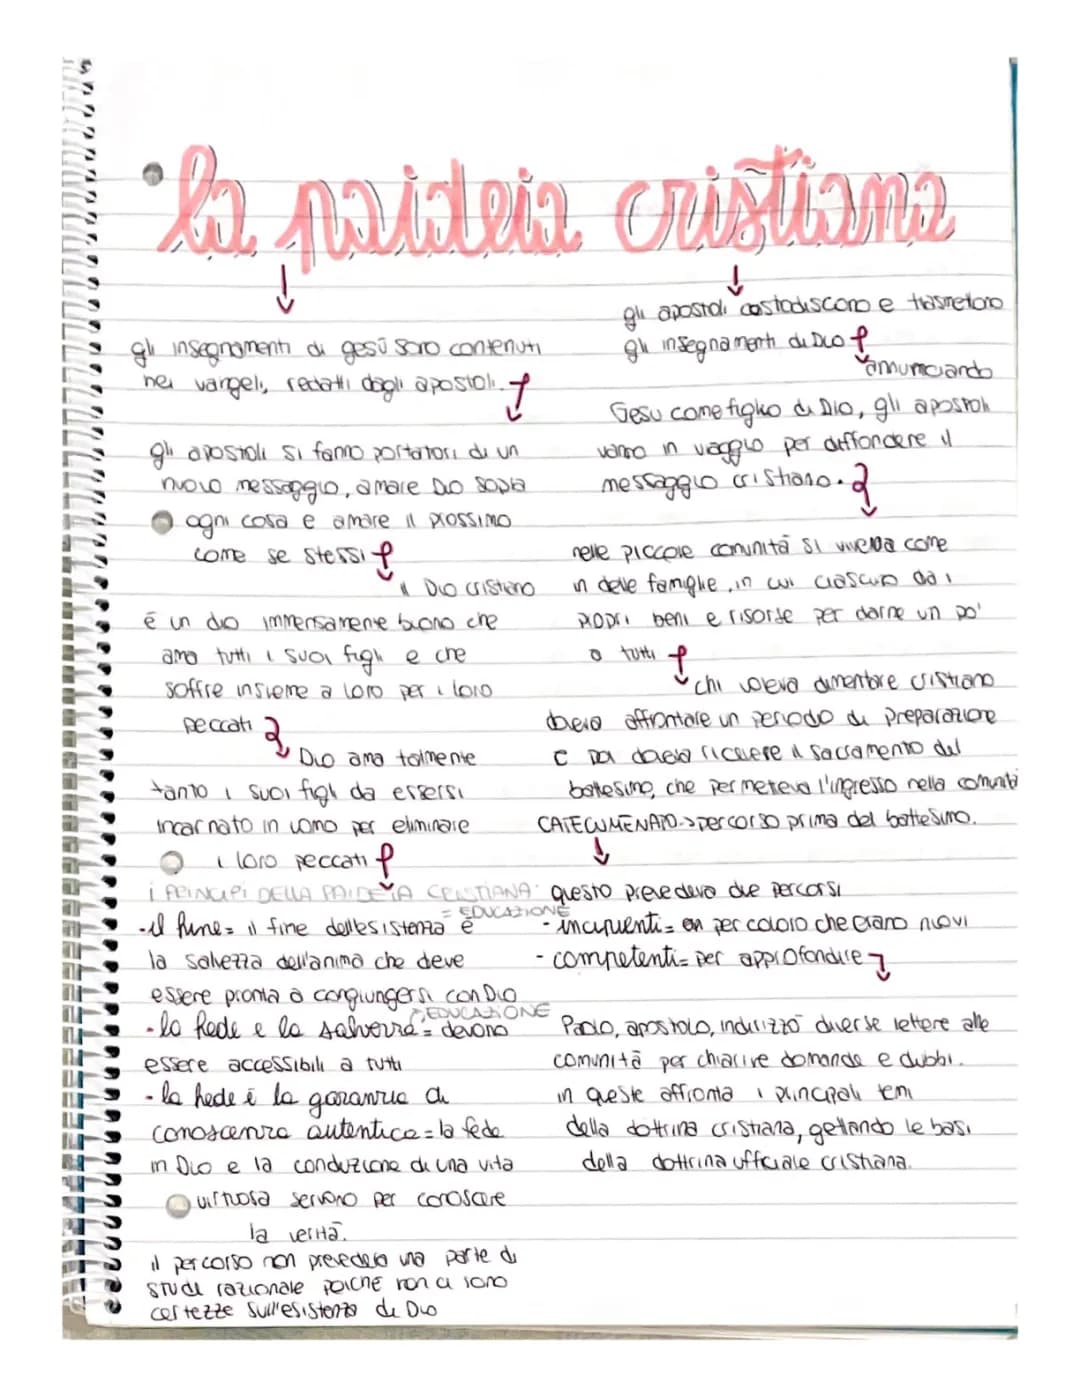 la paideia cristiana
gli insegnamenti di gesù sono contenuti
nei vangeli, redatti dagli apostoli.
gli apostoli si fanno portatori di un
nuovo messaggio, amare Dio sopra
ogni cosa e amare il prossimo
come se stessi
il Dio cristiano
è un dio immensamente buono che
ama tutti i suoi figli e che
soffre insieme a loro per i loro
peccati
Dio ama talmente
tanto i suoi figli da essersi
incarnato in uomo per eliminare
i loro peccati
i PRINCIPI DELLA PAIDEIA CRISTIANA:
= EDUCAZIONE
- il fine = il fine dell'esistenza è
la salvezza dell'anima che deve
essere pronta a congiungersi con Dio
EDUCAZIONE
- la fede e la salvezza = devono
essere accessibili a tutti
- la fede è la garanzia di
conoscenza autentica = la fede
in Dio e la conduzione di una vita
virtuosa servono per conoscere
la verità.
il percorso non prevedeva una parte di
studi razionale poiché non ci sono
certezze sull'esistenza di Dio
gli apostoli custodiscono e trasmettono
gli insegnamenti di Dio
annunciando
Gesù come figlio di Dio, gli apostoli
vanno in viaggio per diffondere il
messaggio cristiano.
nelle piccole comunità si viveva come
in delle famiglie, in cui ciascun dà i
propri beni e risorse per darne un po'
a tutti
chi voleva diventare cristiano
doveva affrontare un periodo di preparazione
e poi doveva ricevere il sacramento del
battesimo, che permetteva l'ingresso nella comunità
CATECUMENATO -> percorso prima del battesimo.
questo prevedeva due percorsi
- incipienti = per coloro che erano nuovi
- competenti = per approfondire
Paolo, apostolo, indirizzò diverse lettere alle
comunità per chiarire domande e dubbi.
in queste affronta i principali temi
della dottrina cristiana, gettando le basi
della dottrina ufficiale cristiana.